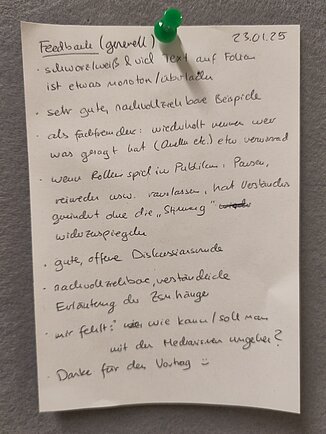 Feedback (generell) 23.01.25
· schwarz/weiß & viel Text auf Folien
ist etwas monoton / überladen
· sehr gute, nachvollziehbare Beispiele
· als fachfremder: wiederholt nennen wer
was gesagt hat (Quellen etc.) etw. verwirrend
· wenn Rollenspiel in Publikum, Pausen,
reinreden usw. rauslassen, hat Verständnis
gemindert ohne die „Stimmung"
widerzuspiegeln
· gute, offene Diskussionsrunde
· nachvollziehbare, verständliche
Erläuterung der
· mir fehlt: wie kann/soll man
mit den umgehen?
· Danke für den Vortrag :)